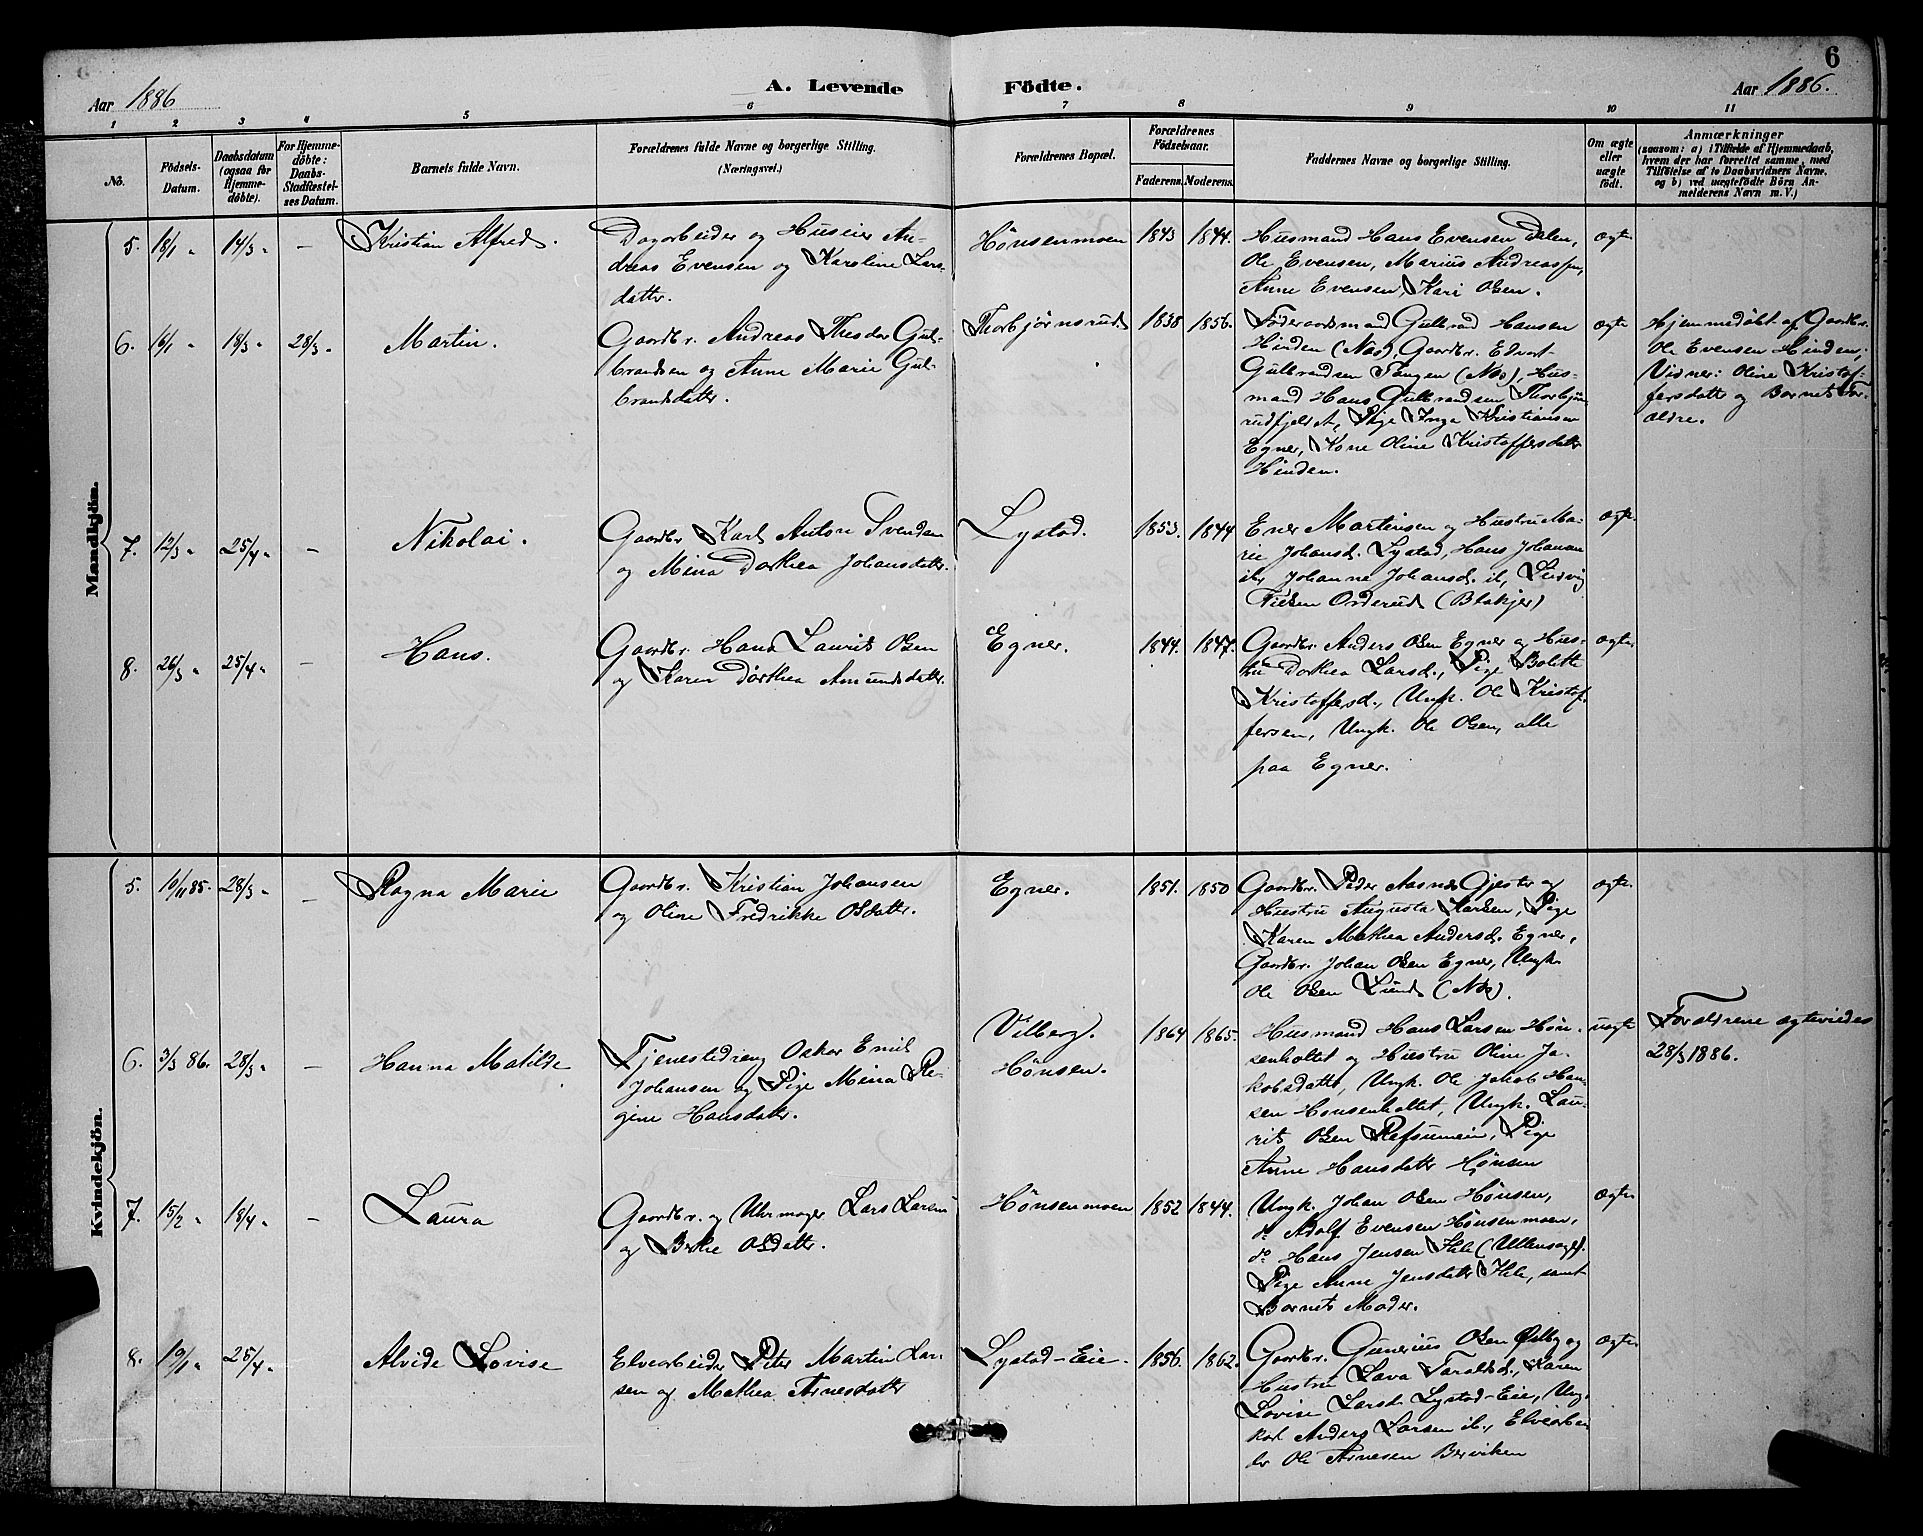 6
Aar 1886
A. Levende Födte.
Aar 1886.
1 2 3 4 5 6 7 8 9 10 11
No.
Födsels-
Datum.
Daabsdatum
(ogsaa for
Hjemme-
döbte).
For Hjemme-
döbte:
Daabs-
Stadfæstel-
ses Datum.
Barnets fulde Navn.
Forældrenes fulde Navne og borgerlige Stilling.
(Næringsvei.)
Forældrenes Bopæl.
Forældrenes
Födselsaar.
Faderens. Moderens.
Faddernes Navne og borgerlige Stilling.
Om ægte
eller
uægte
født.
Anmærkninger
(saasom: a) i Tilfælde af Hjemmedaab,
hvem der har forrettet samme, med
Tilföielse af to Daabsvidners Navne,
og b) ved uægtefödte Börn An-
melderens Navn m. V.)
Mandkjön.
5. 18/1 " 14/3 " –
Kristian Alfred.
Dagarbeider og Huseier An-
dreas Evensen og Karoline Lars-
datter.
Hönsenmoen
1843 1844.
Husmand Hans Evensen Dalen,
Ole Evensen, Marius Andreassen,
Anne Evensen, Kari Olsen.
ægte
6. 16/1 " 18/3 " 28/3 "
Martin.
Gaardbr. Andreas Theodor Gul-
brandsen og Anne Marie Gul-
brandsdatter.
Thorbjörnsrud
1838 1856.
Föderaadsmand Gulbrand Hansen
Hinden (Næs), Gaardbr. Edvart
Gulbrandsen Tangen (Næs), Hus-
mand Hans Gulbrandsen Thorbjörns-
rudfjeldet, Pige Inga Kristiansen
Egner, Kone Oline Kristoffersdatter
Hinden.
ægte
Hjemmedöbt af Gaardbr.
Ole Evensen Hinden;
Vidner: Oline Kristof-
fersdatter og Barnets For-
ældre.
7. 12/3 " 25/4 " –
Nikolai.
Gaardbr. Karl Anton Svendsen
og Mina Dorthea Johansdatter.
Lystad.
1853. 1844
Ener Martinsen og Hustru Ma-
rie Johansd. Lystad, Hans Johansen
ib, Johanne Johansd. ib, Ludvig
Nielsen Orderud (Blakjer)
ægte.
8. 26/3 " 25/4 " –
Hans.
Gaardbr. Hans Laurits Olsen
og Karen Dorthea Amundsdatter.
Egner.
1844. 1847.
Gaardbr. Anders Olsen Egner og Hus-
tru Dorthea Larsd., Pige Bolette
Kristoffersd., Ungk. Ole Kristof-
fersen, Ungk. Ole Olsen, alle
paa Egner.
ægte.
Kvindekjön.
5. 10/11 85. 28/3 " –
Ragna Marie
Gaardbr. Kristian Johansen
og Oline Fredrikke Olsdatter.
Egner.
1851. 1850
Gaardbr. Peder Aasnes Gjester og
Hustru Augusta Karlsen, Pige
Karen Mathea Andersd. Egner,
Gaardbr. Johan Olsen Egner, Ungk.
Ole Olsen Lund (Næs).
ægte.
6. 3/3 86. 28/3 " –
Hanna Matilde
Tjenestedreng Oskar Emil
Johansen og Pige Mina Re-
gine Hansdatter.
Vilberg.
Hönsen.
1864 1865.
Husmand Hans Larsen Hön-
senholtet og Hustru Oline Ja-
kobsdatter, Ungk. Ole Jakob Han-
sen Hönsenholtet, Ungk. Lau-
rits Olsen Refsumeie, Pige
Anne Hansdatter Hönsen
uægte
Forældrene ægteviedes
28/3 1886.
7. 15/2 " 18/4 " –
Laura
Gaardbr. og Uhrmager Lars Larsen
og Berthe Olsdatter.
Hönsenmoen
1852 1844.
Ungk. Johan Olsen Hönsen,
do Adolf Evensen Hönsenmoen,
do Hans Jensen Hele (Ullensager).
Pige Anne Jensdatter Hele, samt
Barnets Moder.
Ægte.
8. 19/1 " 25/4 " –
Alvide Lovise
Elvearbeider Peter Martin Lar-
sen og Mathea Arnesdatter
Lystad-Eie.
1856. 1862.
Gaardbr. Gunerius Olsen Østby og
Hustru Lava Taraldsd., Karen
Lovise Larsd. Lystad-Eie, Ung-
karl Anders Larsen ib, Elvearbei-
der Ole Arnesen Berviken
Ægte.